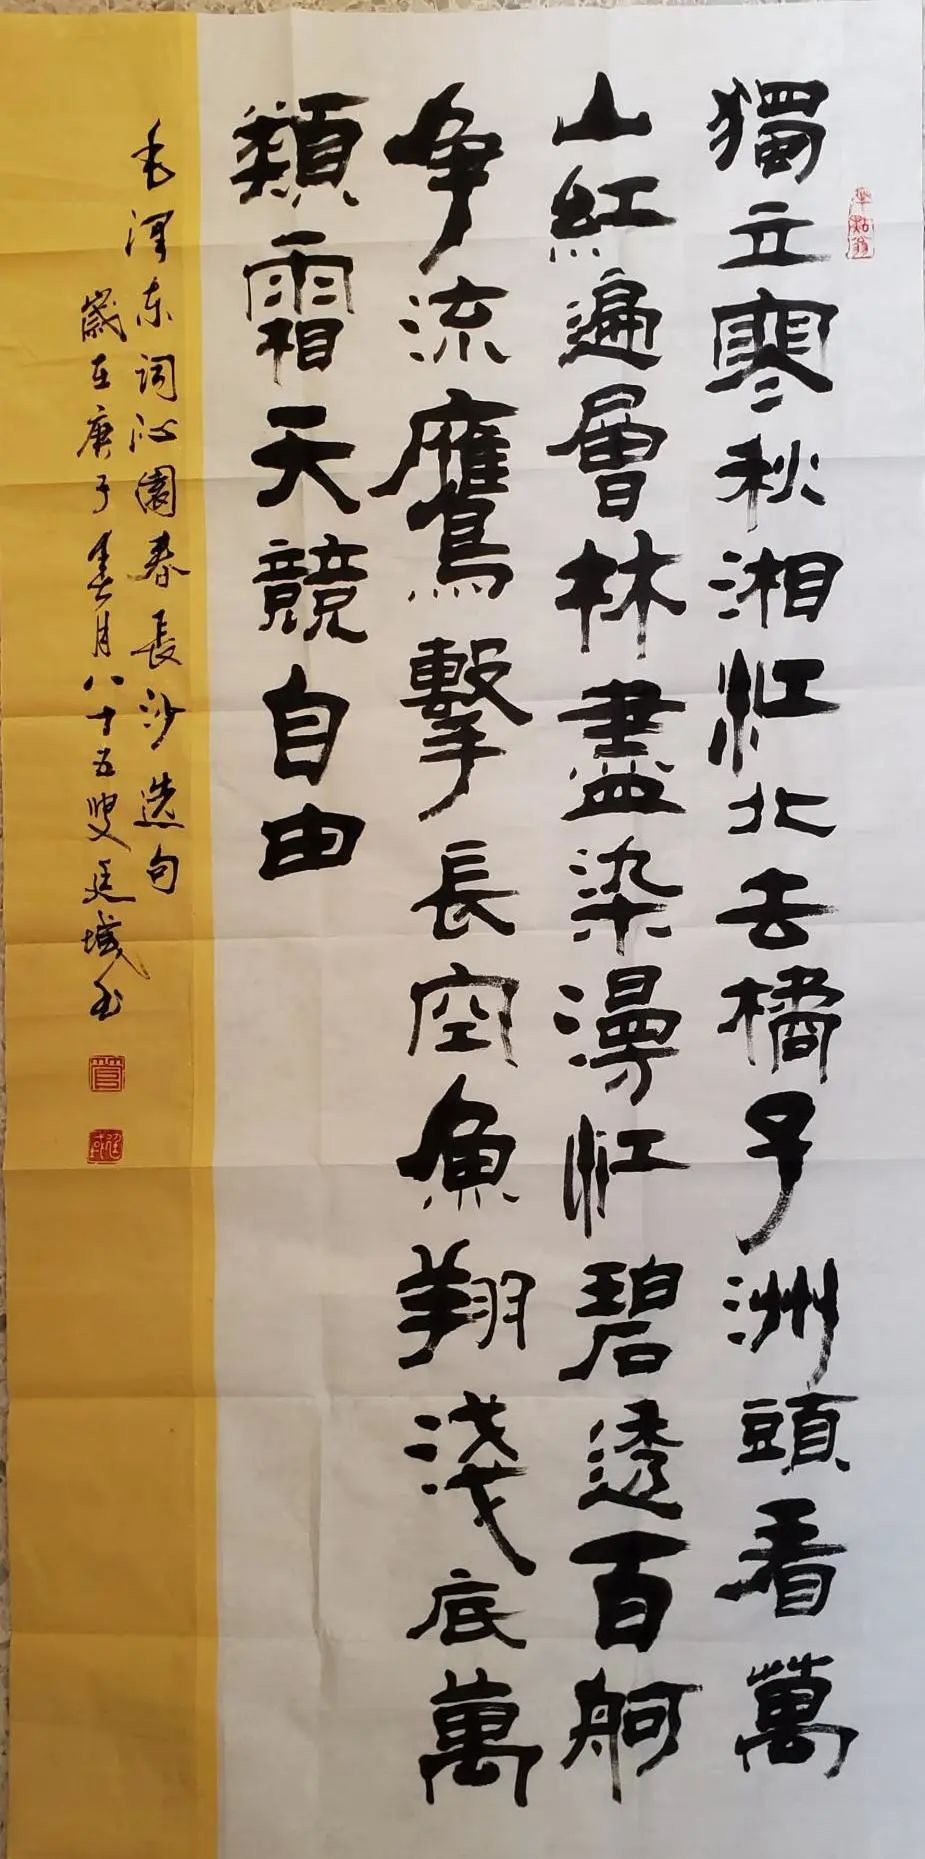 獨立寒秋湘江北去橘子洲頭看萬
山紅遍層林盡染漫江碧透百舸
爭流鷹擊長空魚翔淺底萬
類霜天競自由
毛泽东词沁園春長沙选句
歲在庚子春月八十五叟廷城书